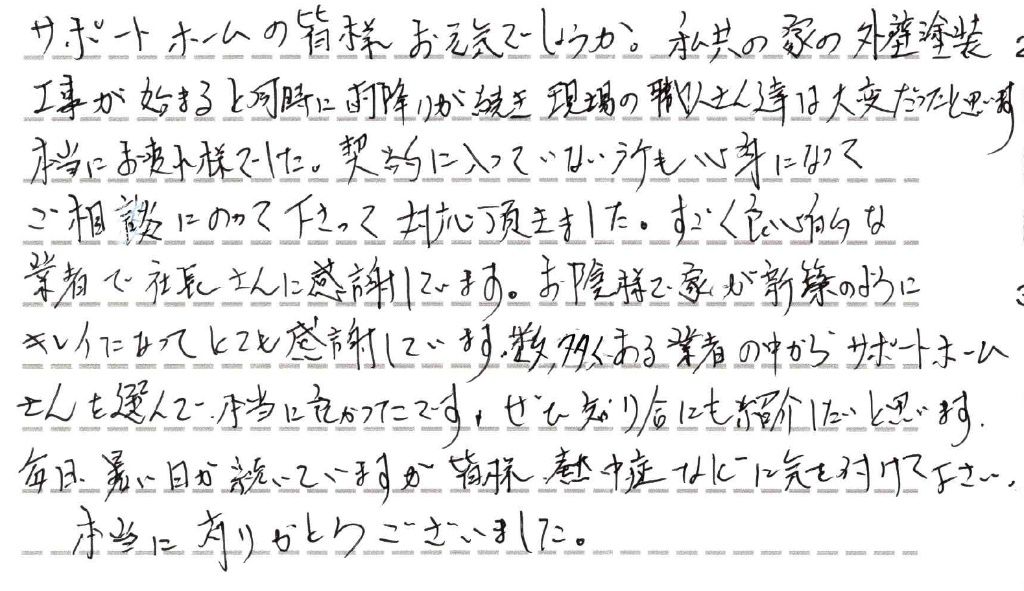 サポートホームの皆様 お元気でしょうか。私共の家の外壁塗装
工事が始まると同時に雨降りが続き 現場の職人さん達は大変だったと思います
本当にお疲れ様でした。契約に入っていない所も心身になって
ご相談にのって下さって対応頂きました。すごく良心的な
業者で社長さんに感謝しています。お陰様で家が新築のように
キレイになってとても感謝しています。数多くある業者の中からサポートホーム
さんを選んで本当に良かったです。ぜひ知り合にも紹介したいと思います。
毎日 暑い日が続いていますが 皆様 熱中症などに気を付けて下さい。
本当に有りがとうございました。